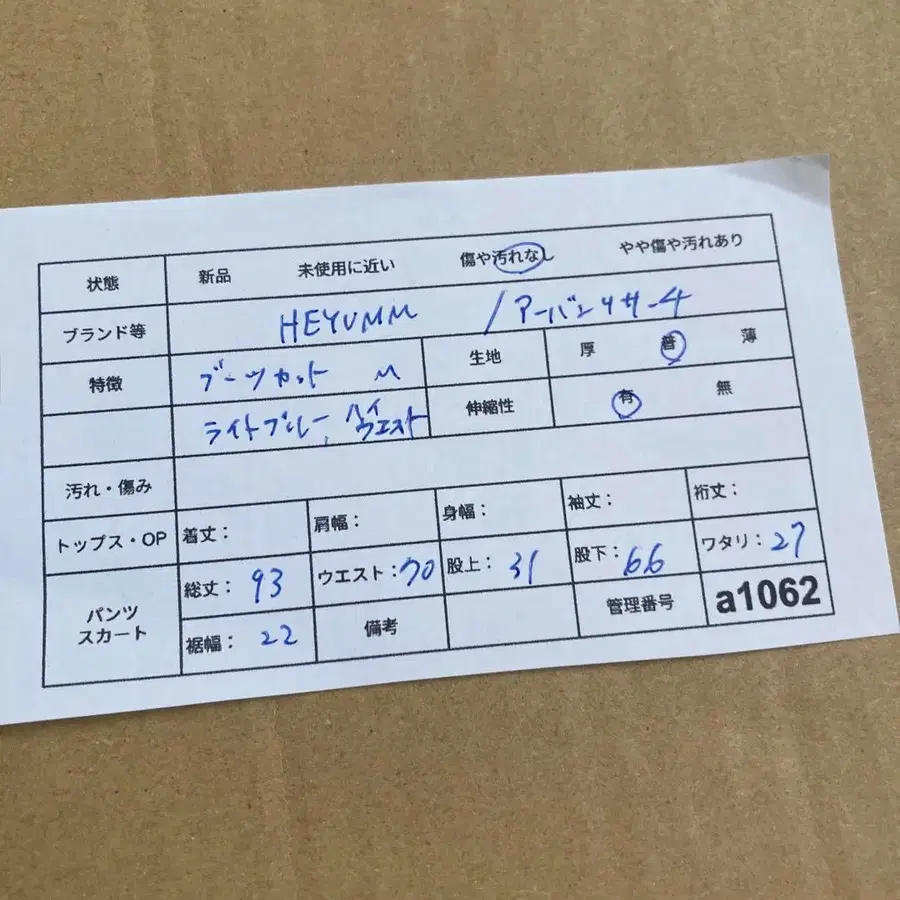 状態 新品 未使用に近い 傷や汚れなし やや傷や汚れあり
ブランド等 HEYUMM /アーバンリサーチ
特徴 ブーツカット M 生地 厚 普 薄
ライトブルー、ハイウエスト 伸縮性 有 無
汚れ・傷み
トップス・OP 着丈： 肩幅： 身幅： 袖丈： 裄丈：
パンツ スカート 総丈：93 ウエスト：70 股上：31 股下：66 ワタリ：27
裾幅：22 備考 管理番号 a1062